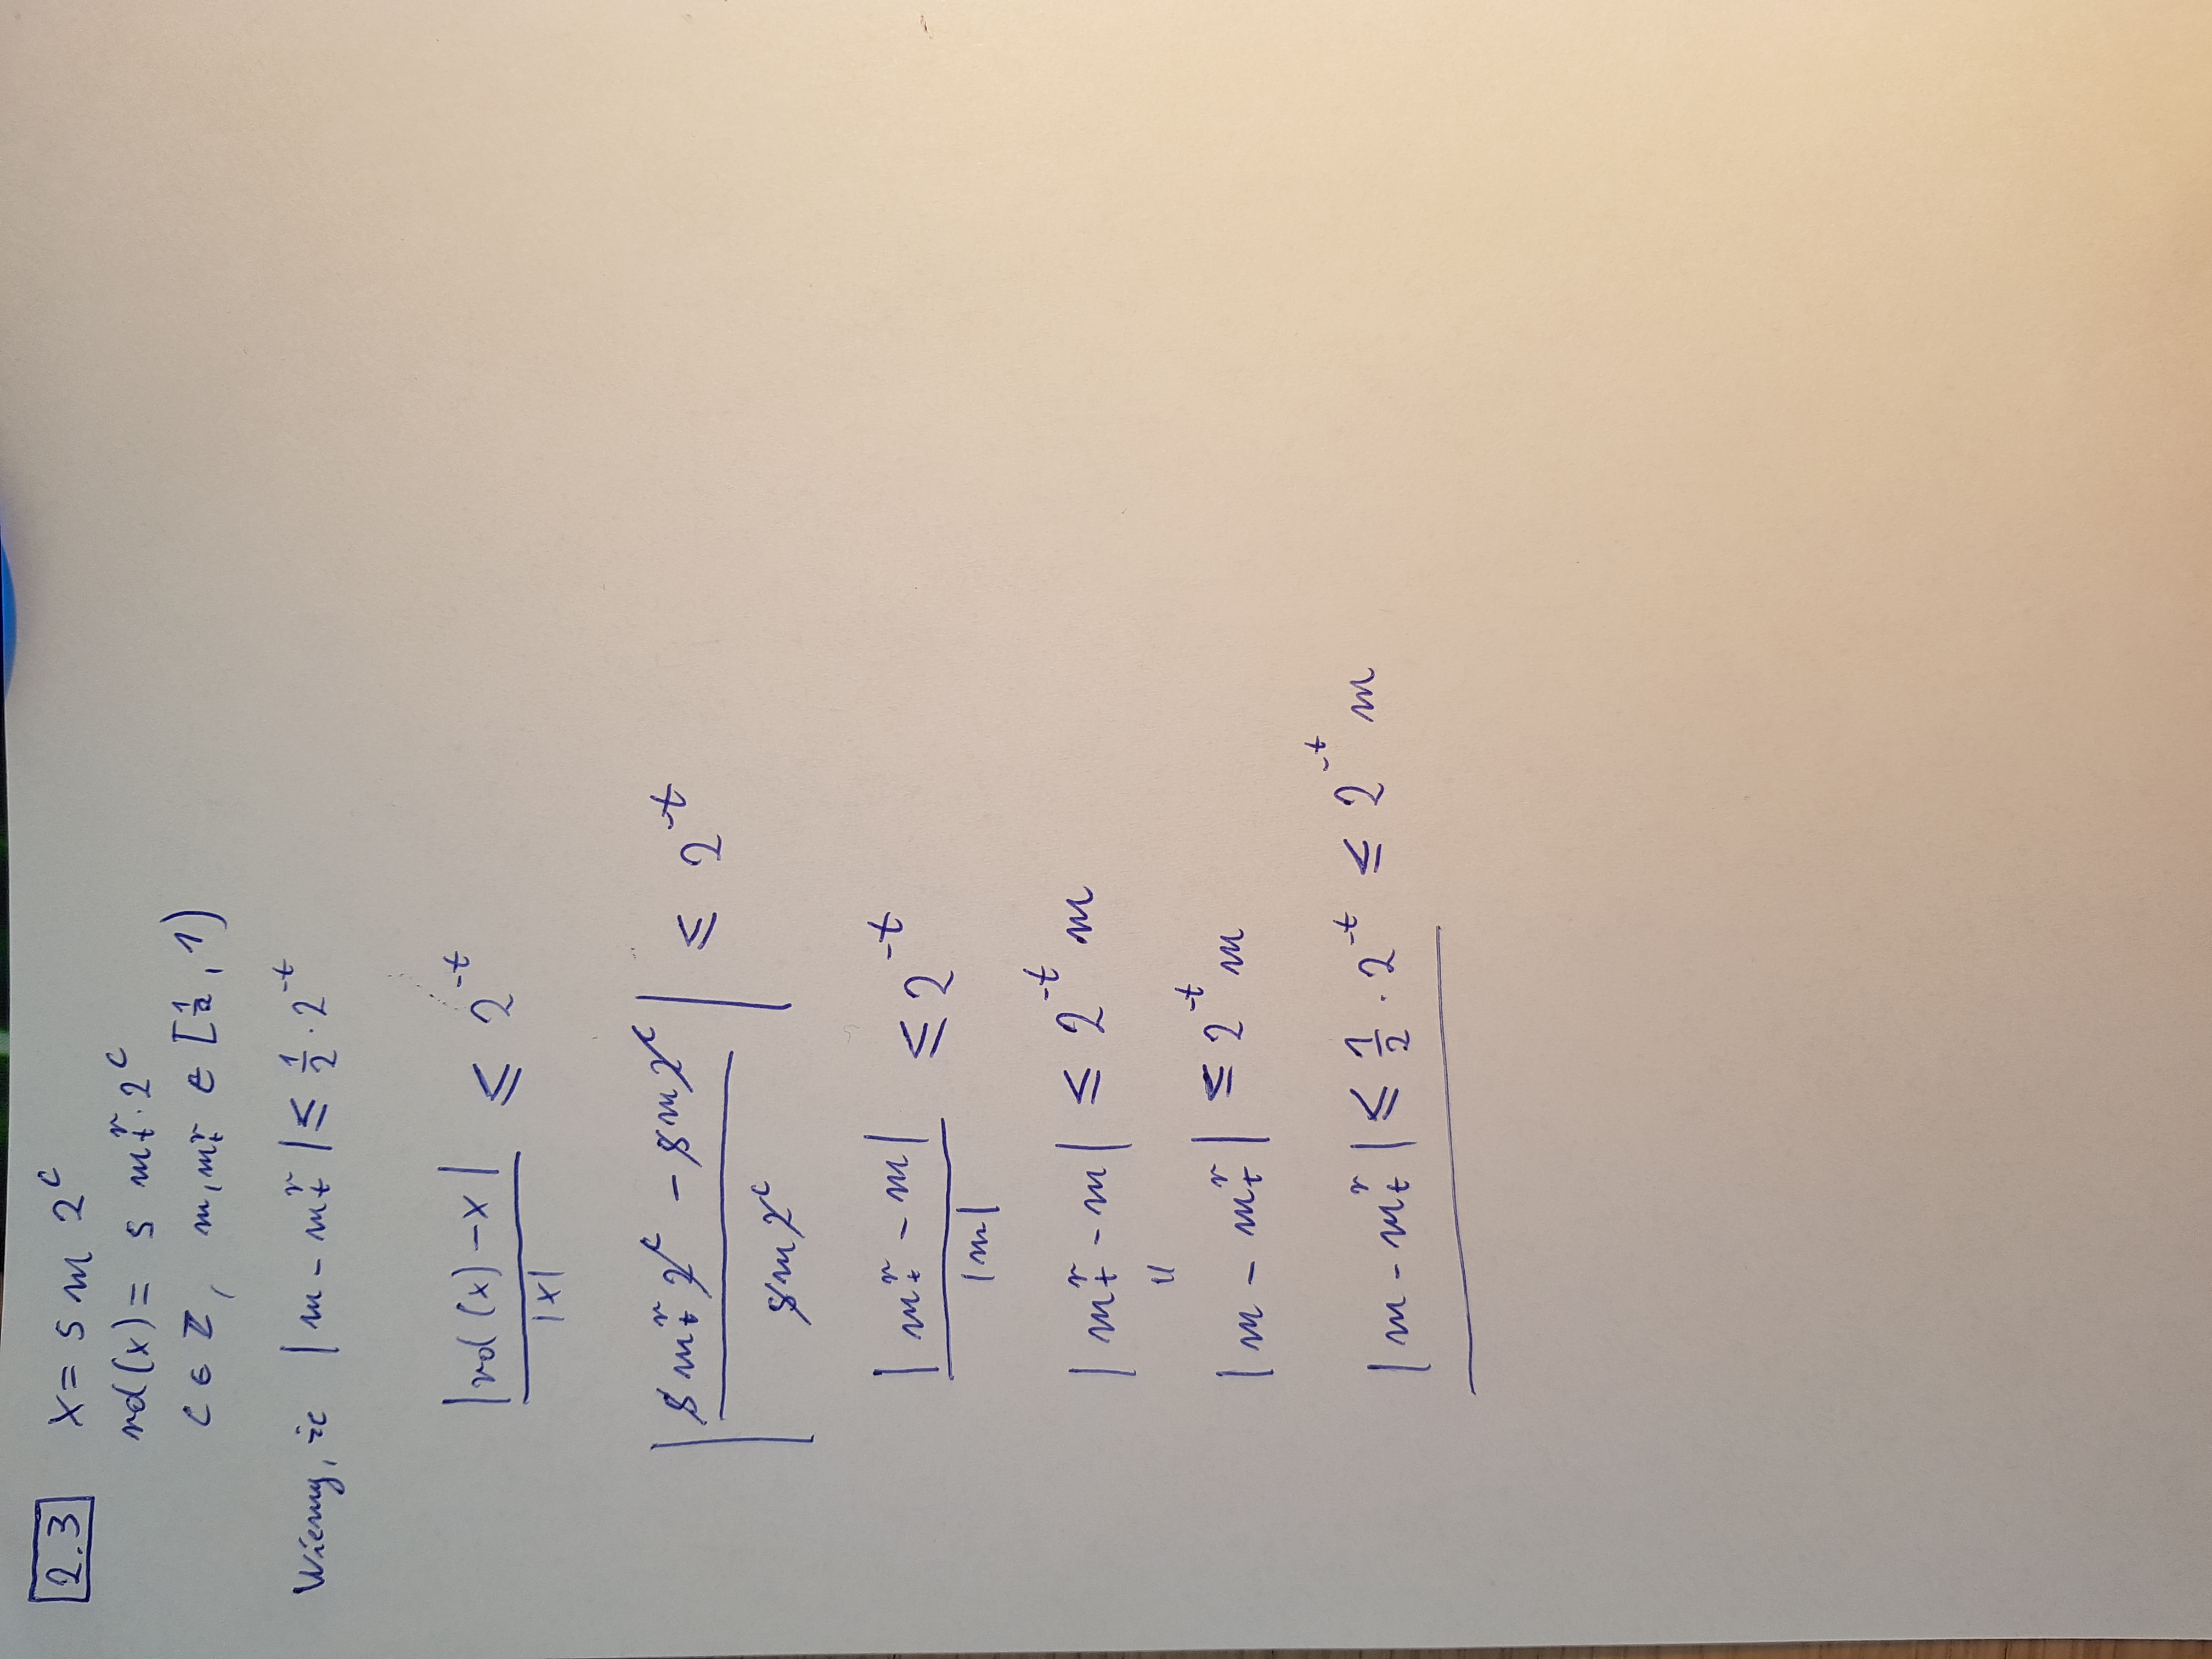 2.3 x = s m 2^c
rd(x) = s m_t^r · 2^c
c ∈ ℤ, m, m_t^r ∈ [1/2, 1)
Wiemy, że |m - m_t^r| ≤ 1/2 · 2^-t
|rd(x) - x| / |x| ≤ 2^-t
|(s m_t^r 2^c - s m 2^c) / (s m 2^c)| ≤ 2^-t
|m_t^r - m| / |m| ≤ 2^-t
|m_t^r - m| ≤ 2^-t m
||
|m - m_t^r| ≤ 2^-t m
|m - m_t^r| ≤ 1/2 · 2^-t ≤ 2^-t m